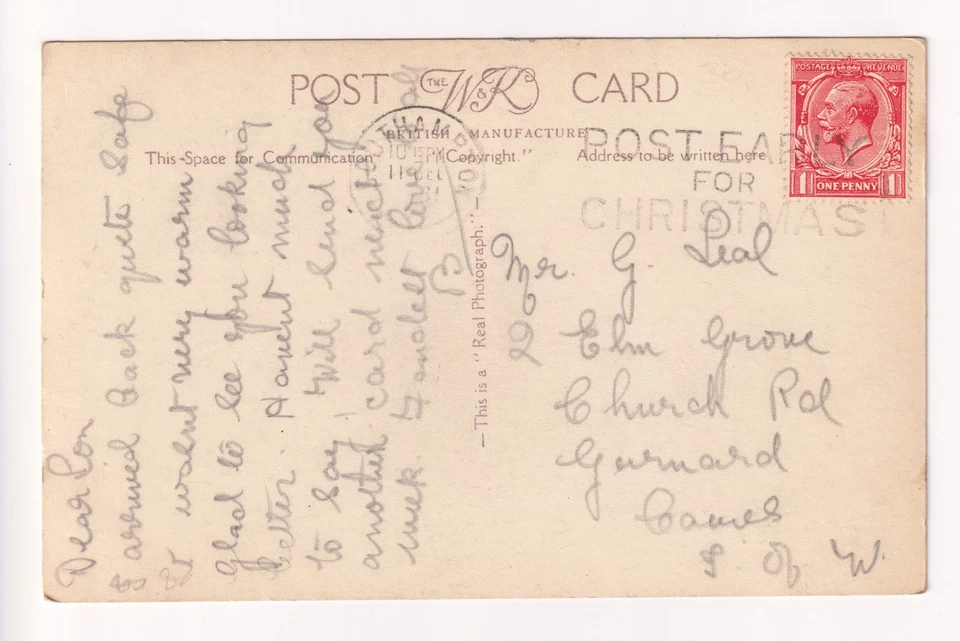 POST THE W&K CARD
BRITISH MANUFACTURE
This Space for Communication
"Copyright."
Address to be written here
—This is a "Real Photograph."—
10 15 PM
11 DEC
POST EARLY
FOR
CHRISTMAS
POSTAGE REVENUE
1 ONE PENNY 1
Mr. G. Leal
2 Elm Grove
Church Rd
Gurnard
Cowes
I. Of W.
Dear Son
arrived back quite safe
It wasnt very warm
Glad to see you looking
better. Havent much
to say. Will send you
another card next
week. Fondest love
B